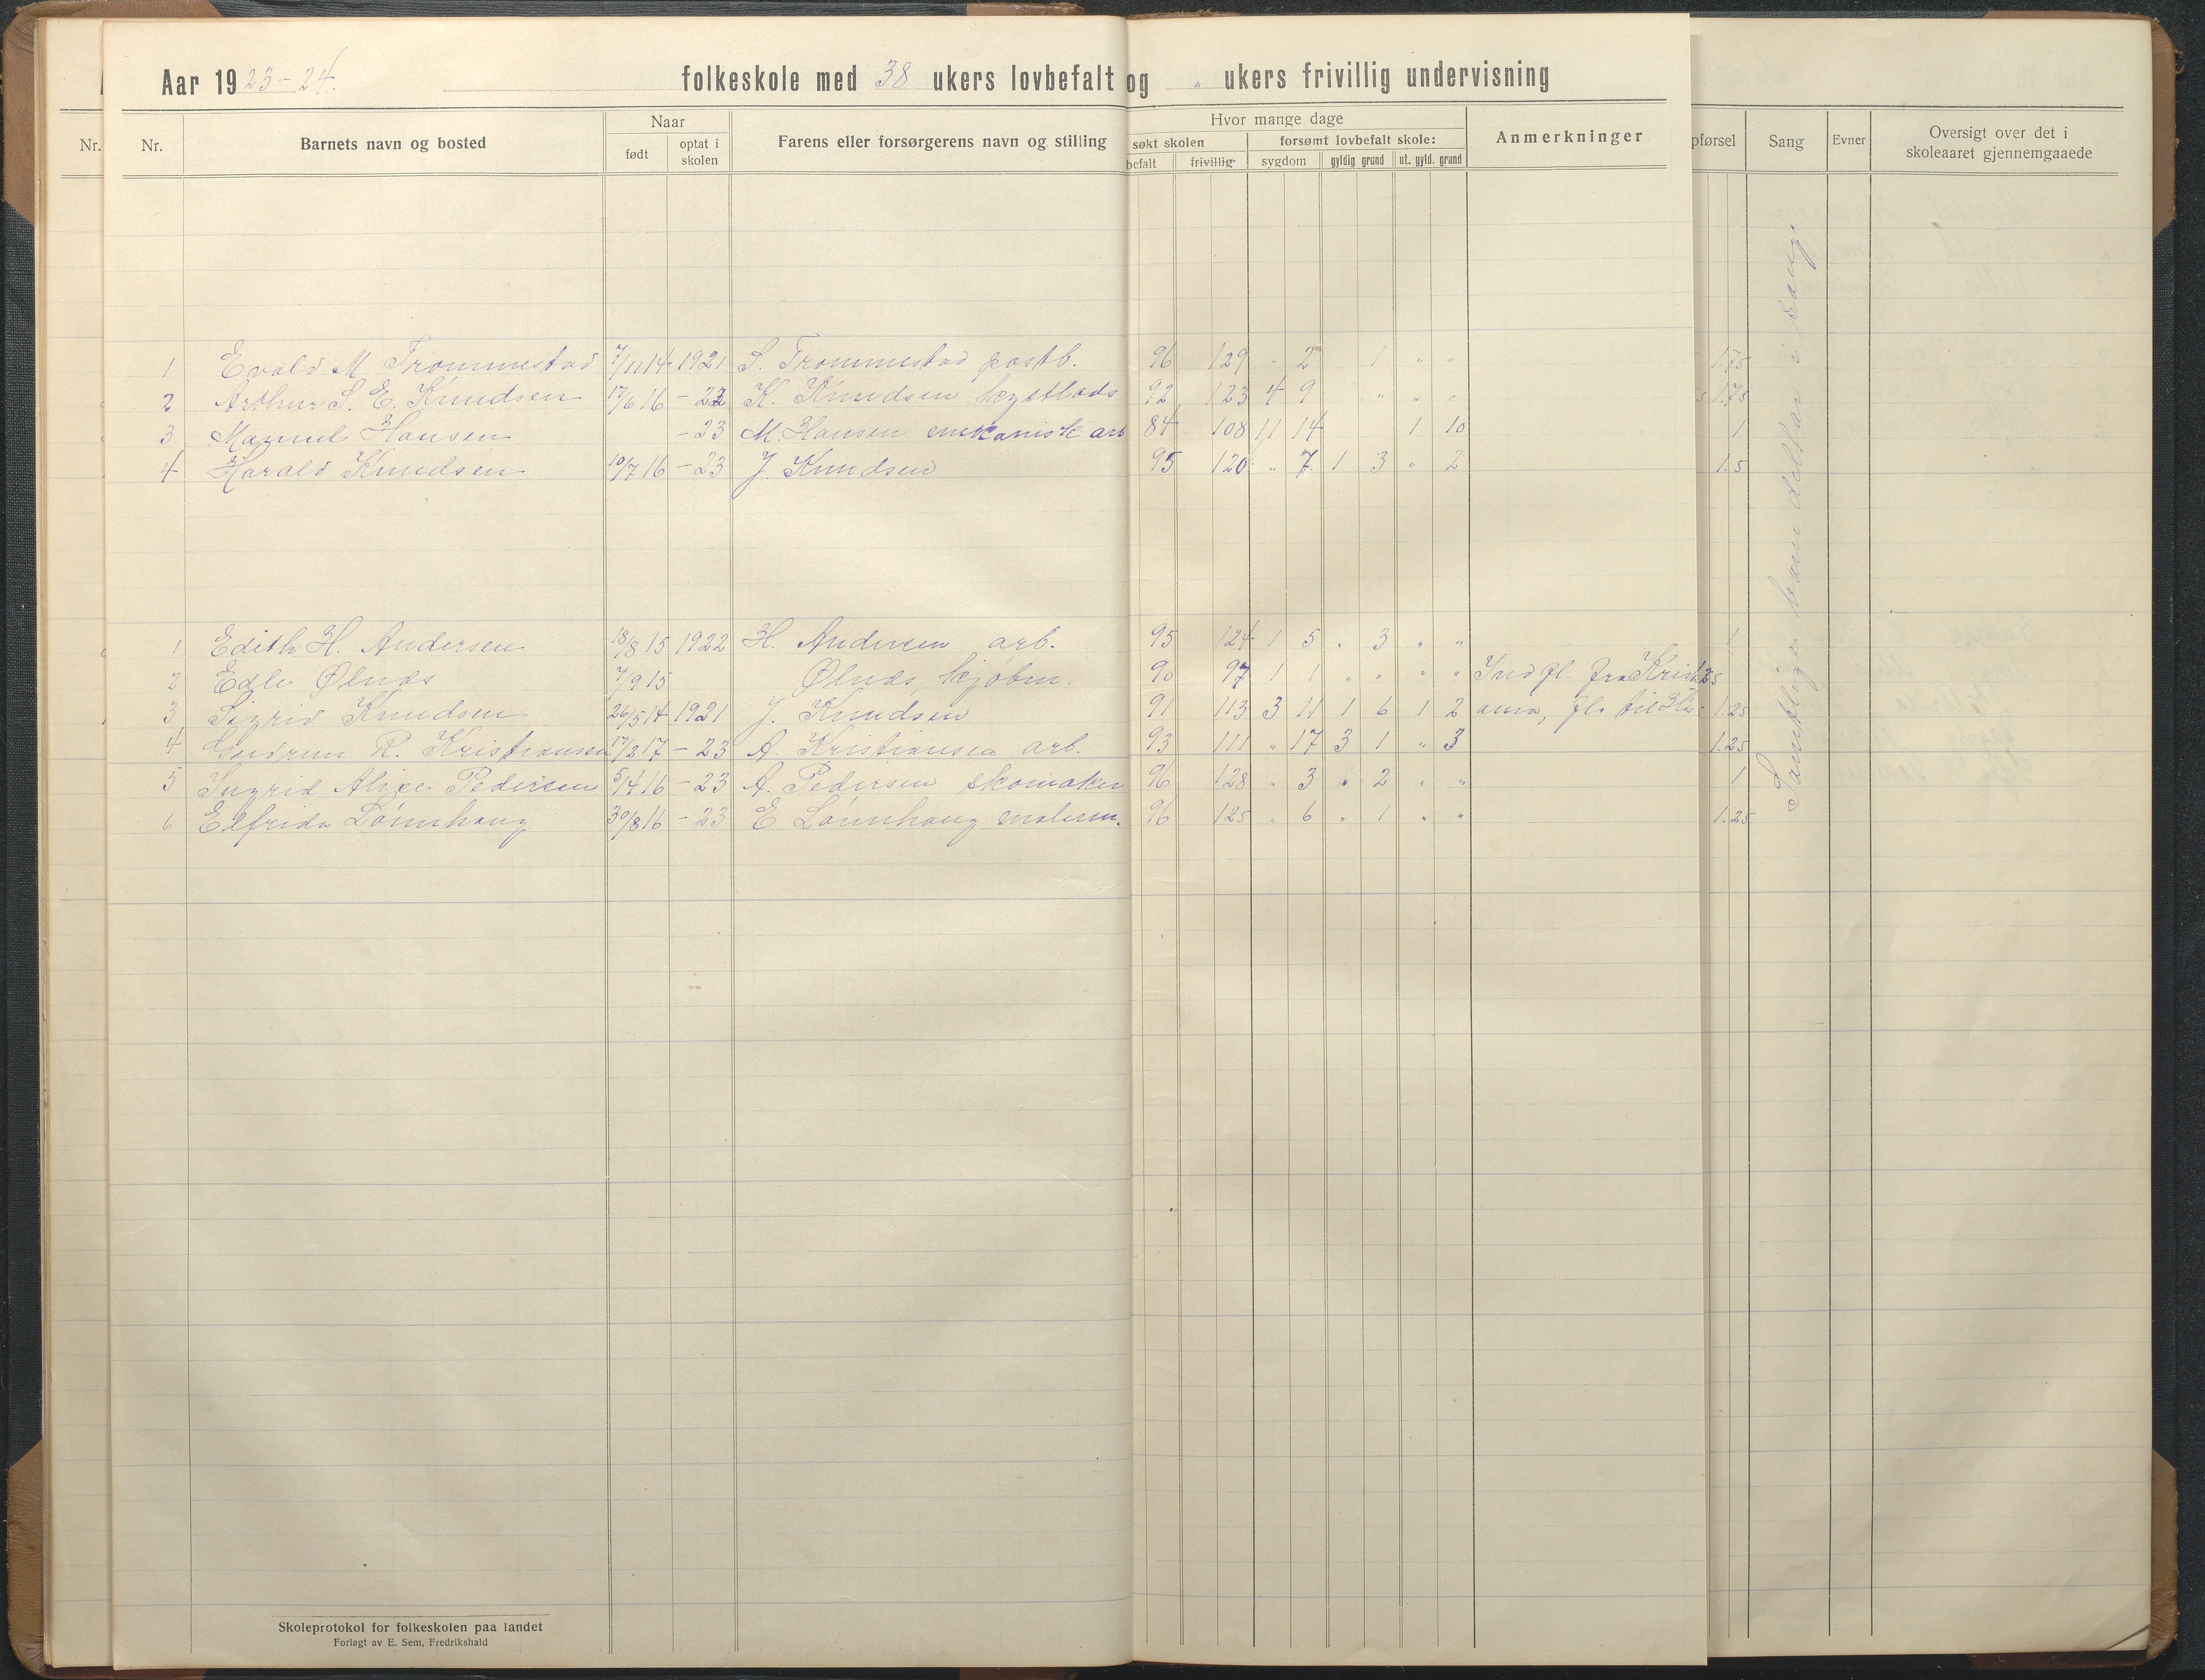 Aar 1923-24. folkeskole med 38 ukers lovbefalt og " ukers frivillig undervisning
Nr. Nr. Barnets navn og bosted Naar født optat i skolen Farens eller forsørgerens navn og stilling Hvor mange dage søkt skolen befalt frivillig forsømt lovbefalt skole: sygdom gyldig grund ut. gyld. grund Anmerkninger pførsel Sang Evner Oversigt over det i skoleaaret gjennemgaaede
1 Evald M. Trommestad 7/11 14 1921 S. Trommestad postb. 96 129 " 2 1 " " 1.75
2 Arthur S. E. Knudsen 17/6 16 - 22 K. Knudsen kystlods 92 123 4 9 " " " 1.75
3 Manuel Hansen - 23 M. Hansen mekanisk arb 84 108 11 14 1 10 1
4 Harald Knudsen 10/7 16 - 23 J. Knudsen 95 120 " 7 1 3 " 2 1.5
1 Edith H. Andersen 18/8 15 1922 H. Andersen arb. 95 124 1 5 " 3 " " 1
2 Edle Ølnæs 7/9 15 Ølnæs, kjøbm. 90 97 1 1 " " " " Indfl. fra Kristi
3 Sigrid Knudsen 26/5 14 1921 J. Knudsen 91 113 3 11 1 6 1 2 ania, fl. til 1.25
4 Gudrun R. Kristiansen 17/2 17 - 23 A. Kristiansen arb. 93 111 " 17 3 1 " 3 1.25
5 Ingrid Alice Pedersen 5/4 16 - 23 A. Pedersen skomaker 96 128 " 3 " 2 " " 1
6 Elfrida Lønnhaug 30/8 16 - 23 E Lønnhaug malerm. 96 125 " 6 " 1 " " 1.25
Samtlige barn deltar i sang.
Skoleprotokol for folkeskolen paa landet
Forlagt av E. Sem, Fredrikshald